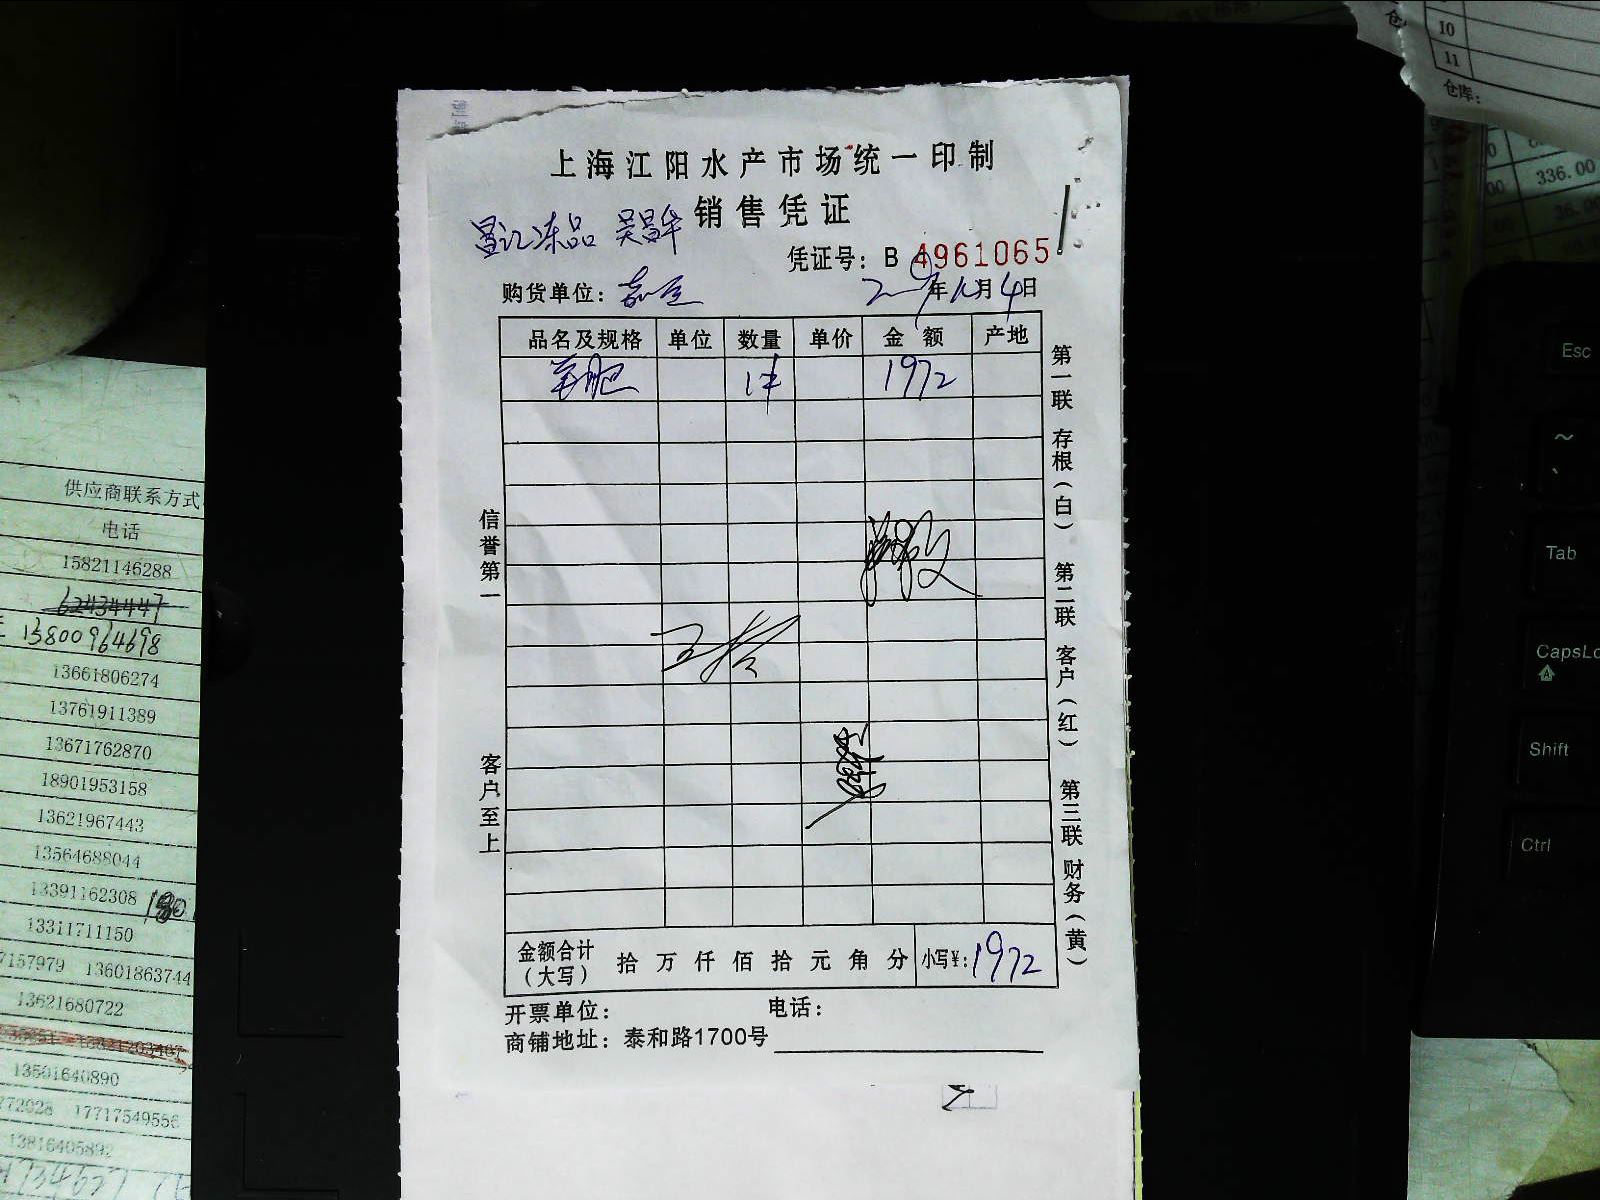 上海江阳水产市场统一印制
销售凭证
冻品 吴昌华
凭证号: B 4961065
购货单位:
年 月 4日
品名及规格 单位 数量 单价 金 额 产地
1件 1972
信誉第一
客户至上
第一联 存根(白) 第二联 客户(红) 第三联 财务(黄)
金额合计(大写) 拾 万 仟 佰 拾 元 角 分 小写¥: 1972
开票单位: 电话:
商铺地址: 泰和路1700号
供应商联系方式
电话
15821146288
62434447
13800964698
13661806274
13761911389
13671762870
18901953158
13621967443
13564688044
13391162308
13311711150
7157979 13601863744
13621680722
13501640890
772028 17717549556
10
11
仓库:
336.00
36.00
Esc
~
Tab
CapsLo
Shift
Ctrl